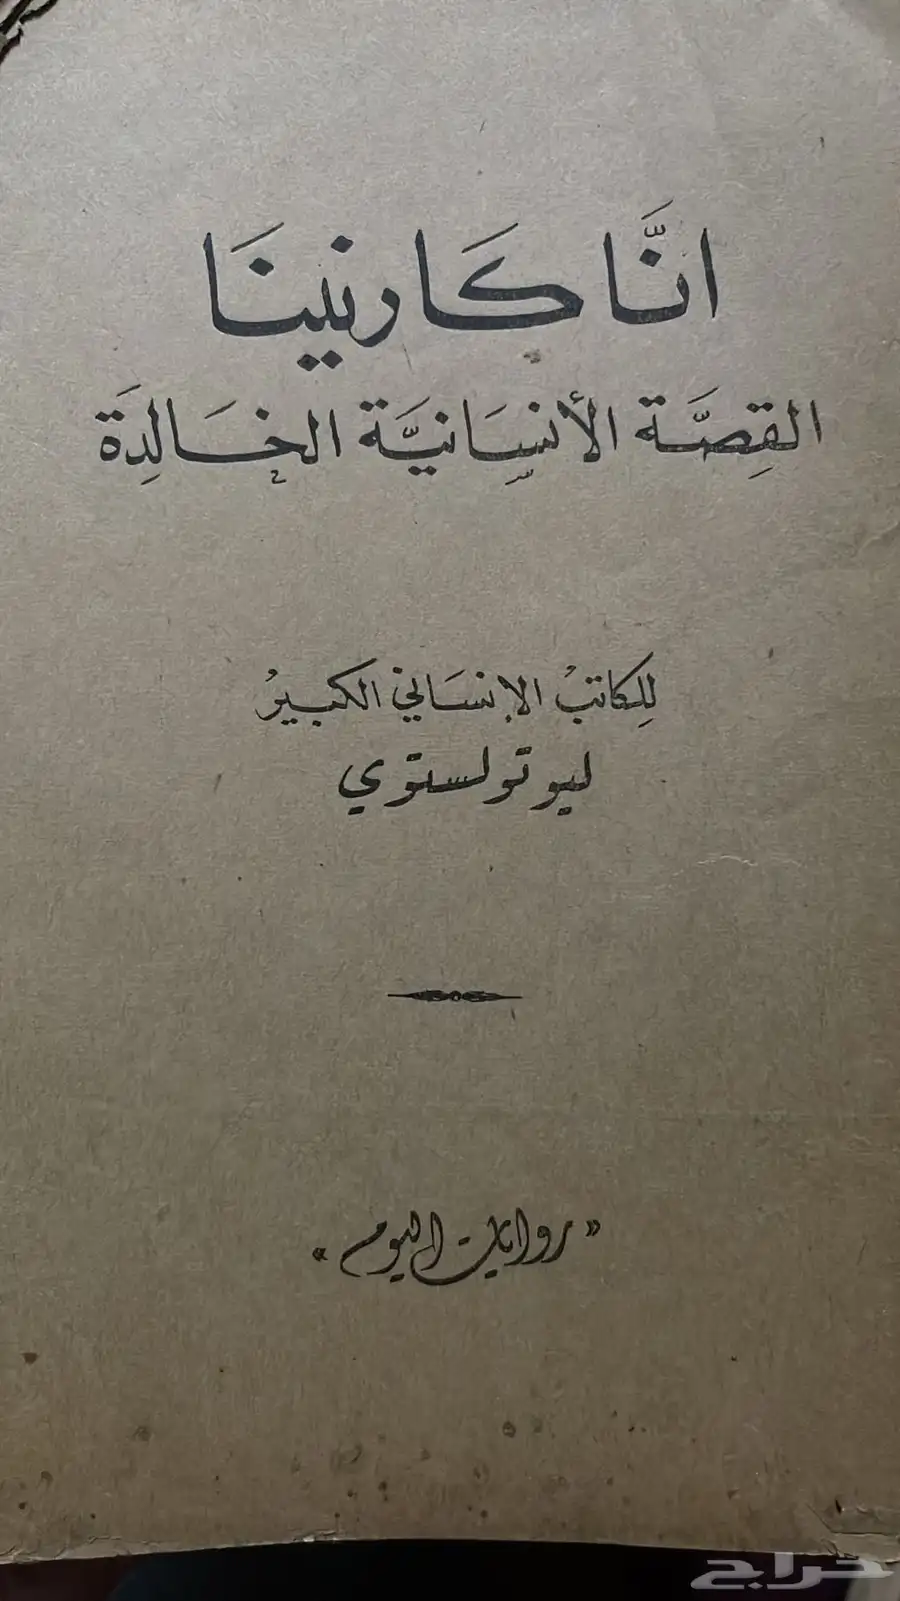 انَّا كَارنينَا
القِصَّة الأنسَانيَّة الخَالِدَة
لِلكاتبْ الإنسَاني الكبيرْ
ليو تولستوي
«روايات اليوم»
حراج